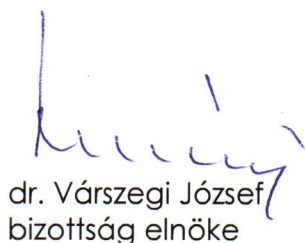 dr. Várszegi József
bizottság elnöke